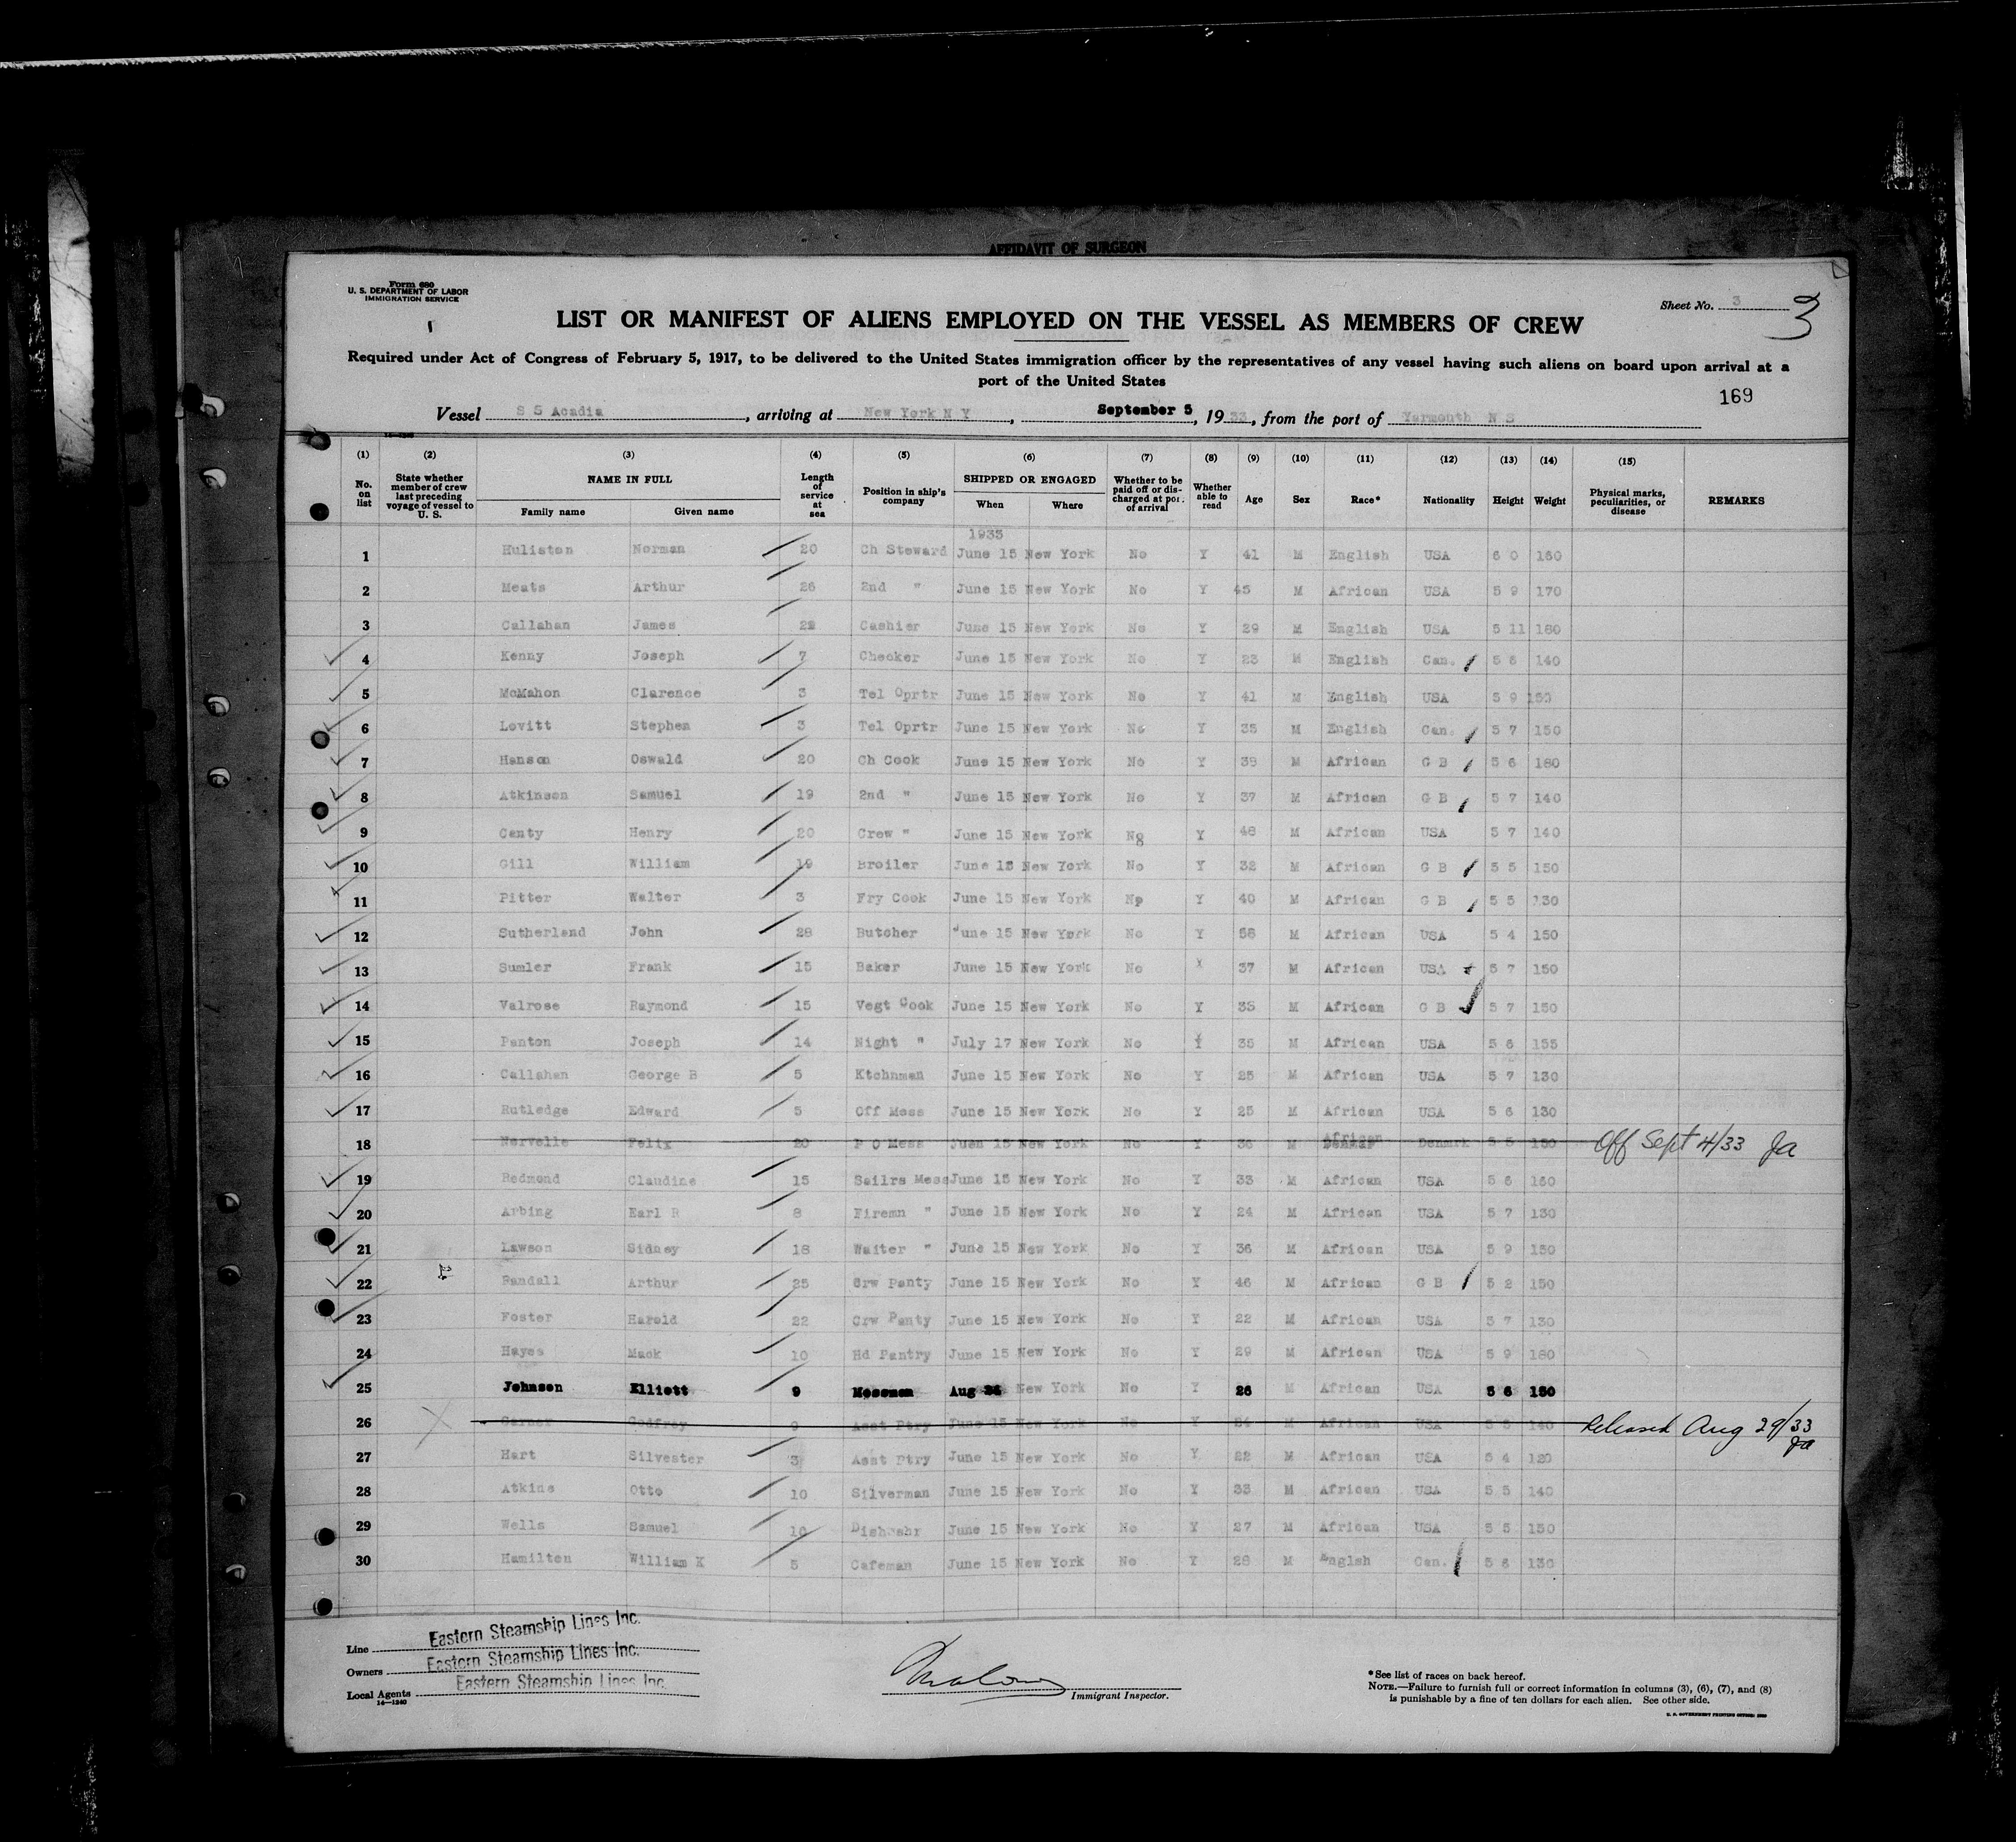 AFFIDAVIT OF SURGEON
Form 680
U. S. DEPARTMENT OF LABOR
IMMIGRATION SERVICE
Sheet No. 3 3
LIST OR MANIFEST OF ALIENS EMPLOYED ON THE VESSEL AS MEMBERS OF CREW
Required under Act of Congress of February 5, 1917, to be delivered to the United States immigration officer by the representatives of any vessel having such aliens on board upon arrival at a
port of the United States
169
Vessel S S Acadia, arriving at New York N Y, September 5, 1933, from the port of Yarmouth N S
14-1240
(1) (2) (3) (4) (5) (6) (7) (8) (9) (10) (11) (12) (13) (14) (15)
No. on list State whether member of crew last preceding voyage of vessel to U. S. NAME IN FULL Family name Given name Length of service at sea Position in ship's company SHIPPED OR ENGAGED When Where Whether to be paid off or discharged at port of arrival Whether able to read Age Sex Race* Nationality Height Weight Physical marks, peculiarities, or disease REMARKS
1933
1 Huliston Norman 20 Ch Steward June 15 New York No Y 41 M English USA 6 0 160
2 Meats Arthur 26 2nd " June 15 New York No Y 45 M African USA 5 9 170
3 Callahan James 22 Cashier June 15 New York No Y 29 M English USA 5 11 180
4 Kenny Joseph 7 Checker June 15 New York No Y 23 M English Can. 5 6 140
5 McMahon Clarence 3 Tel Oprtr June 15 New York No Y 41 M English USA 5 9
6 Lovitt Stephen 3 Tel Oprtr June 15 New York No Y 35 M English Can. 5 7 150
7 Hanson Oswald 20 Ch Cook June 15 New York No Y 38 M African G B 5 6 180
8 Atkinson Samuel 19 2nd " June 15 New York No Y 37 M African G B 5 7 140
9 Canty Henry 20 Crew " June 15 New York No Y 48 M African USA 5 7 140
10 Gill William 19 Broiler June 15 New York No Y 32 M African G B 5 5 150
11 Pitter Walter 3 Fry Cook June 15 New York No Y 40 M African G B 5 5 130
12 Sutherland John 28 Butcher June 15 New York No Y 58 M African USA 5 4 150
13 Sumler Frank 15 Baker June 15 New York No Y 37 M African USA 5 7 150
14 Valrose Raymond 15 Vegt Cook June 15 New York No Y 35 M African G B 5 7 150
15 Panton Joseph 14 Night " July 17 New York No Y 35 M African USA 5 6 155
16 Callahan George B 5 Ktchnman June 15 New York No Y 25 M African USA 5 7 130
17 Rutledge Edward 5 Off Mess June 15 New York No Y 25 M African USA 5 6 130
18 Norvelle Felix 20 P O Mess Juen 15 New York No Y 36 M African Denmark 5 5 150 Off Sept 4/33 Ja
19 Redmond Claudine 15 Sailrs Mess June 15 New York No Y 33 M African USA 5 6 160
20 Arbing Earl R 8 Firemn " June 15 New York No Y 24 M African USA 5 7 130
21 Lawson Sidney 18 Waiter " June 15 New York No Y 36 M African USA 5 9 150
22 Randall Arthur 25 Crw Panty June 15 New York No Y 46 M African G B 5 2 150
23 Foster Harold 22 Crw Panty June 15 New York No Y 22 M African USA 5 7 130
24 Hayes Mack 10 Hd Pantry June 15 New York No Y 29 M African USA 5 9 180
25 Johnson Elliott 9 Messman Aug New York No Y 26 M African USA 5 6 150
26 Garner Godfrey 9 Asst Ptry June 15 New York No Y M African USA 140 Released Aug 29/33 Ja
27 Hart Silvester 3 Asst Ptry June 15 New York No Y 22 M African USA 5 4 120
28 Atkins Otto 10 Silverman June 15 New York No Y 33 M African USA 5 5 140
29 Wells Samuel 10 June 15 New York No Y 27 M African USA 5 5 150
30 Hamilton William K 5 Cafeman June 15 New York No Y 28 M Englsh Can. 5 6 130
Line Eastern Steamship Lines Inc.
Owners Eastern Steamship Lines Inc.
Local Agents Eastern Steamship Lines Inc.
14-1240
Immigrant Inspector.
*See list of races on back hereof.
NOTE.—Failure to furnish full or correct information in columns (3), (6), (7), and (8)
is punishable by a fine of ten dollars for each alien. See other side.